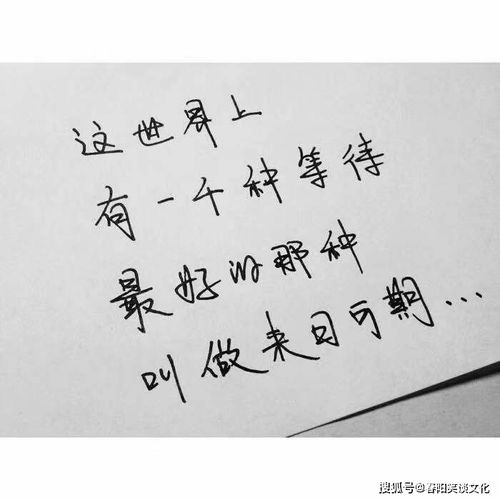 这世界上
有一千种等待
最好的那种
叫做来日可期...
搜狐号@春阳笑谈文化